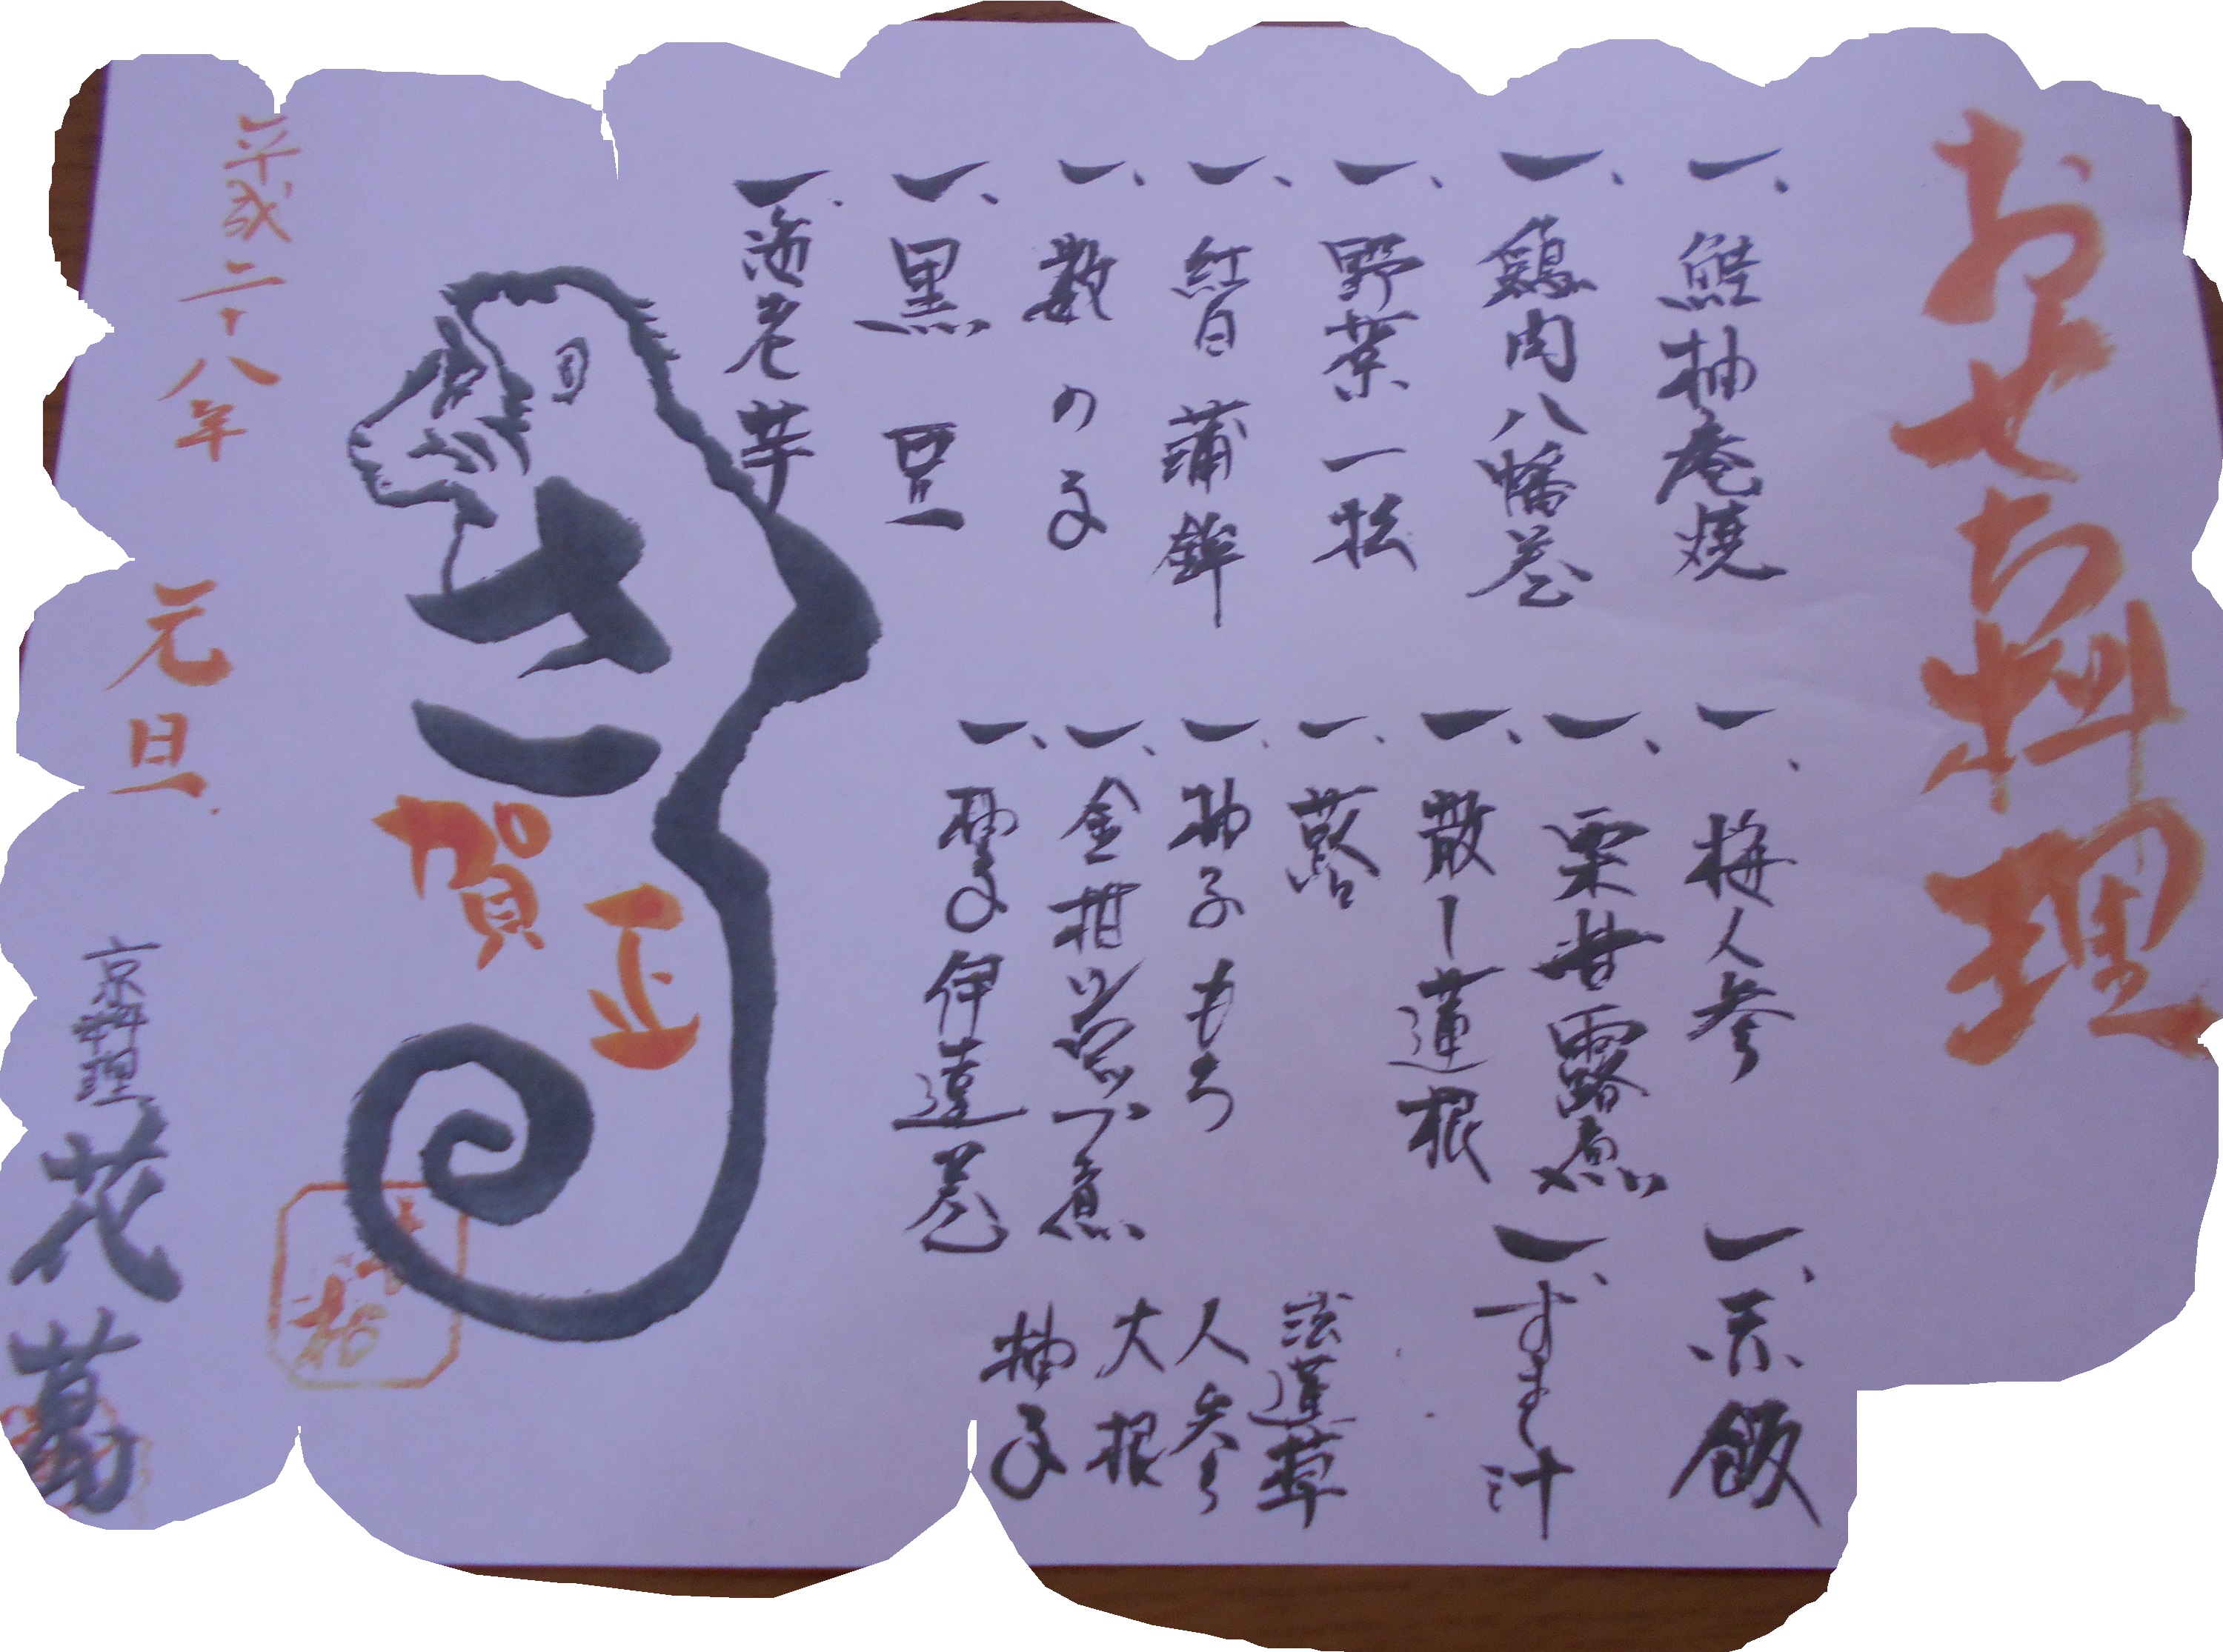 おせち料理
一、鮭柚庵焼
一、鶏肉八幡巻
一、野菜一松
一、紅白蒲鉾
一、数の子
一、黒豆
一、海老芋
一、梅人参
一、栗甘露煮
一、散し蓮根
一、蕗
一、柚子もち
一、金柑
一、伊達巻
一、赤飯
一、すまし汁
法蓮草
人参
大根
柚子
賀正
平成二十八年
元旦
京料理
花萬